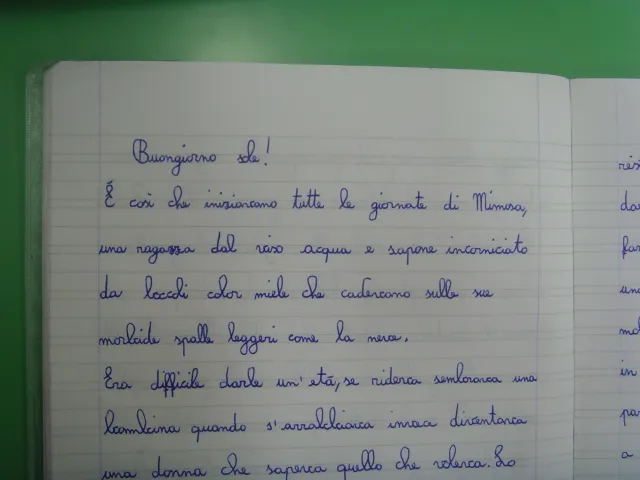 Buongiorno sole!
É così che iniziavano tutte le giornate di Mimosa,
una ragazza dal viso acqua e sapone incorniciato
da boccoli color miele che cadevano sulle sue
morbide spalle leggeri come la neve.
Era difficile darle un'età, se rideva sembrava una
bambina quando s'arrabbiava invece diventava
una donna che sapeva quello che voleva. Lo